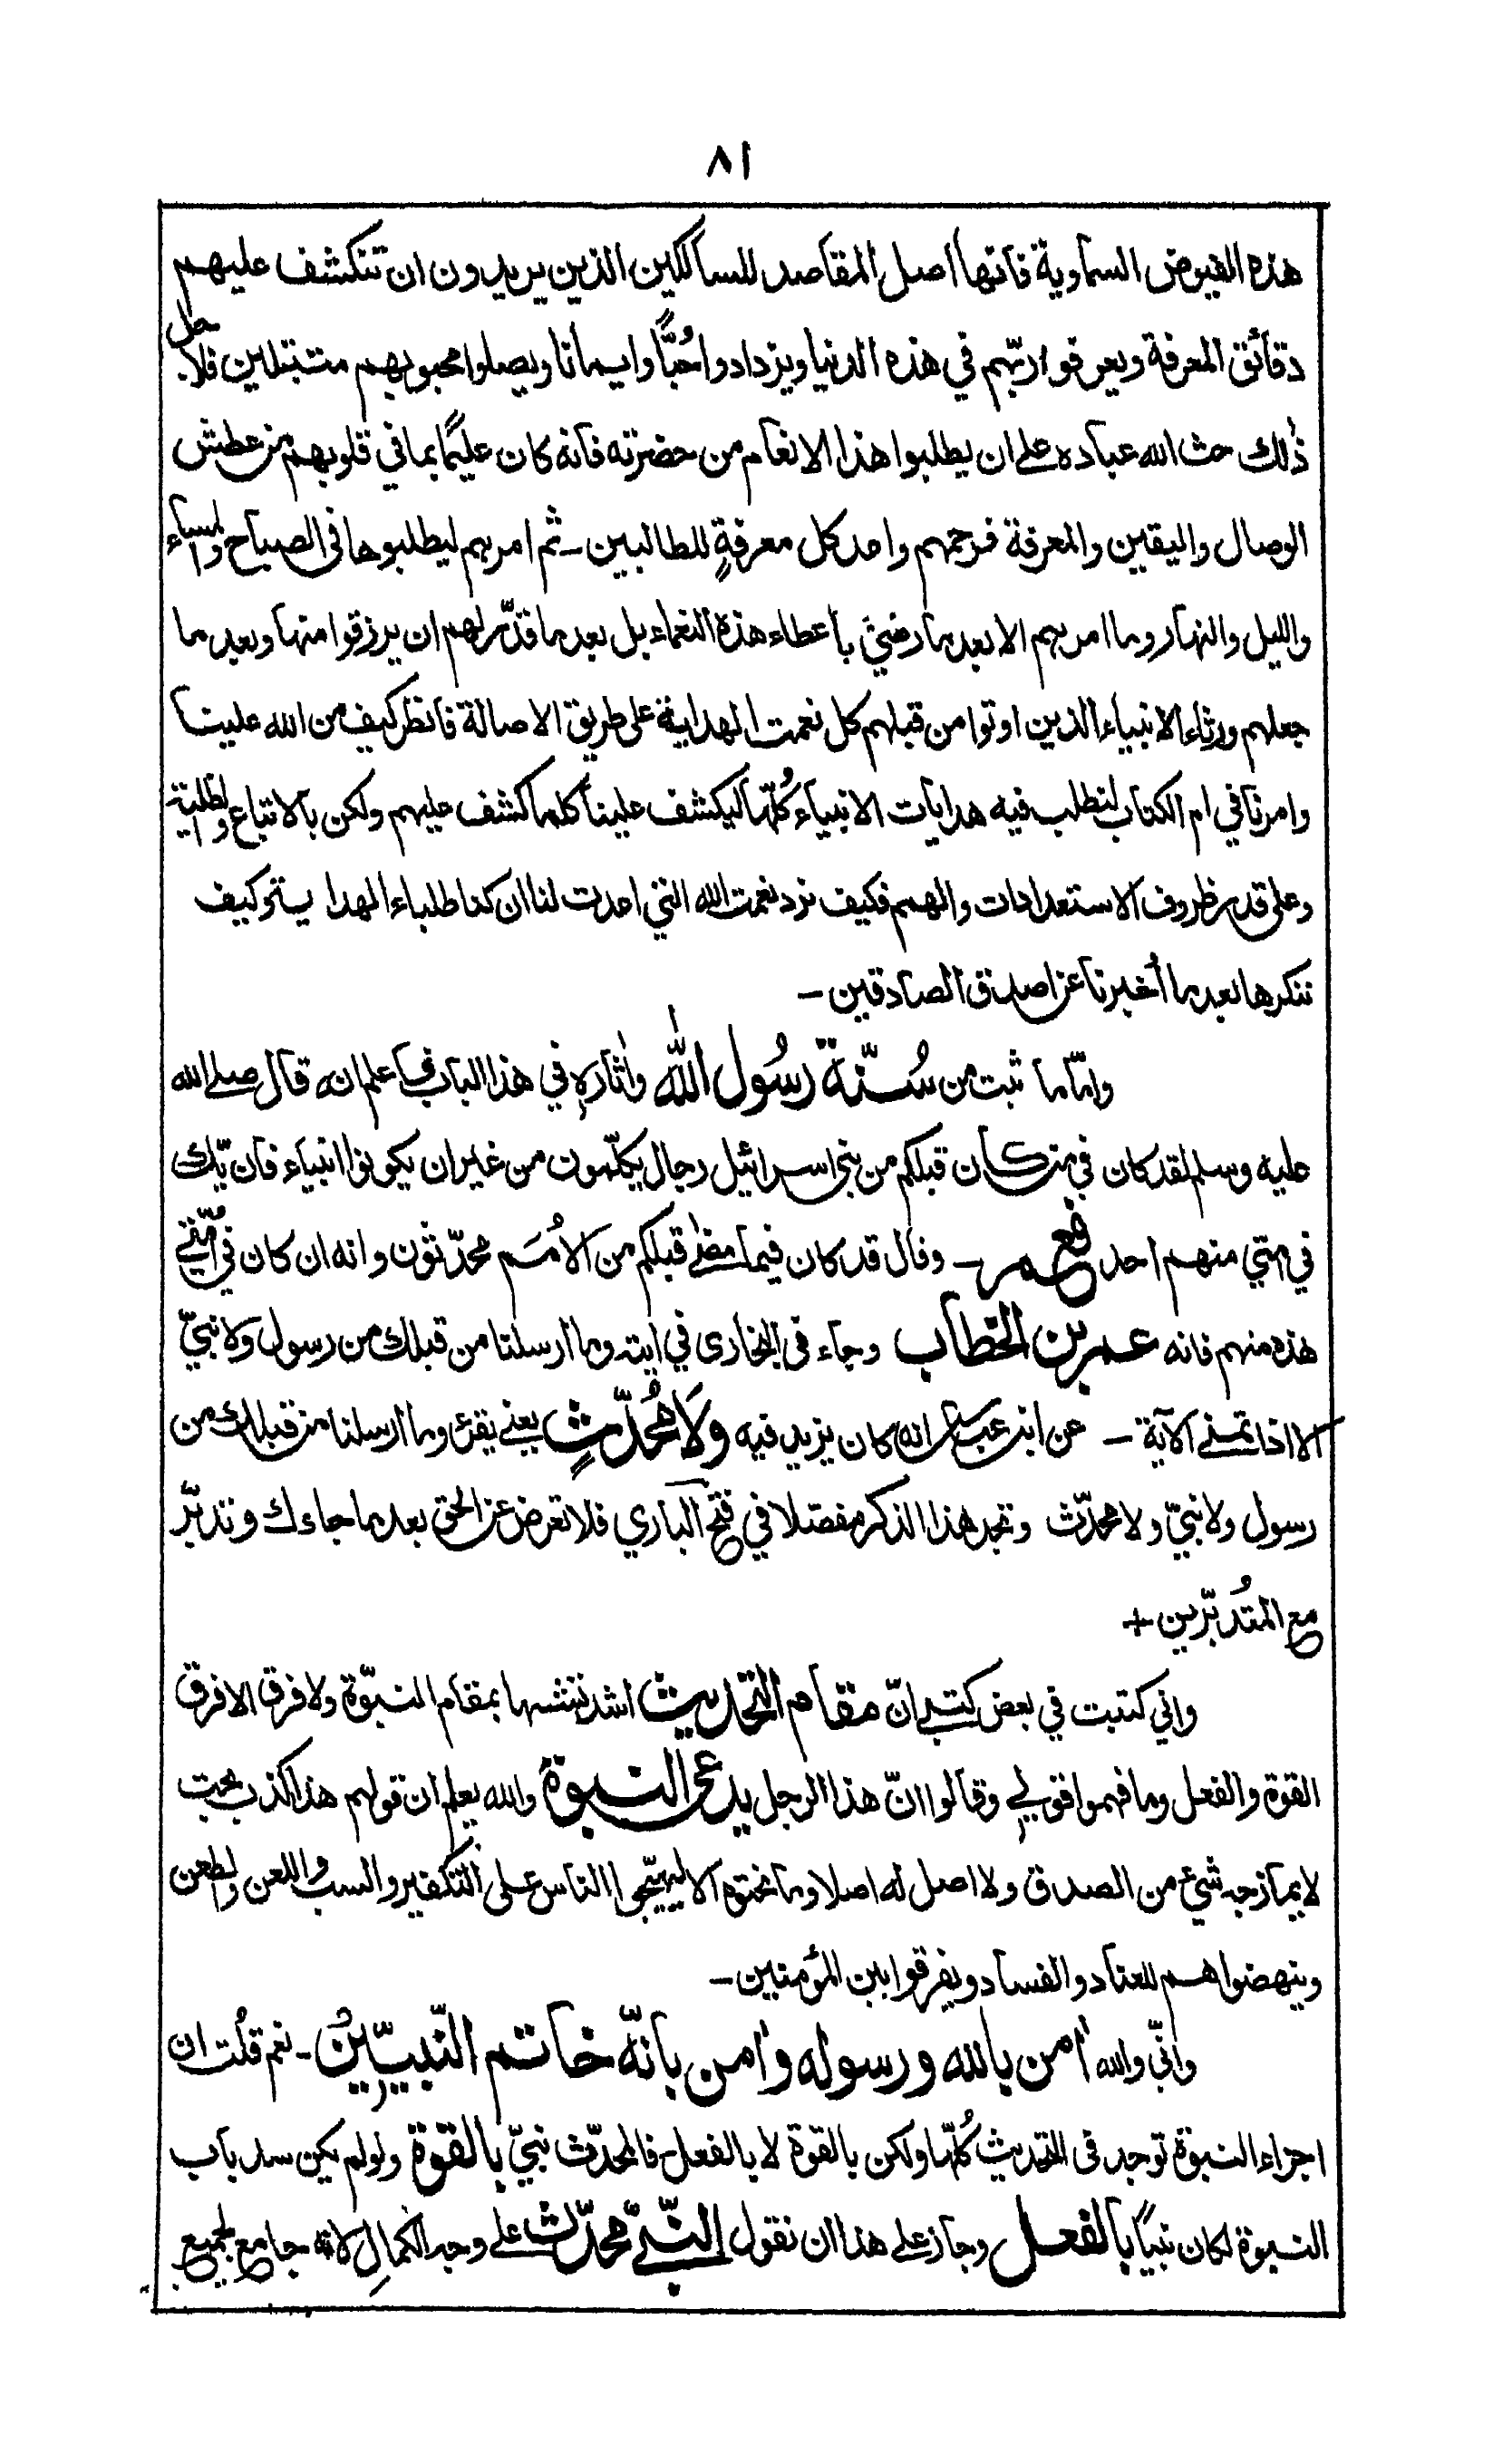 ٨١
هذه الفيوض السماوية فانها اصل المقاصد للسالكين الذين يريدون ان تنكشف عليهم
دقائق المعرفة ويعرفوا ربّهم في هذه الدنيا ويزدادوا حُبًّا وايمانا ويصلوا محبوبهم متبتلين فلاجل
ذٰلك حث الله عباده على ان يطلبوا هذا الانعام من حضرته فانه كان عليمًا بما في قلوبهم من عطش
الوصال واليقين والمعرفة فرحمهم واعد كل معرفةٍ للطالبين - ثم امرهم ليطلبوها في الصباح والمساء
والليل والنهار وما امرهم الا بعد ما رضي باعطاء هذه النعماء بل بعد ما قدّر لهم ان يرزقوا منها وبعد ما
جعلهم ورثاء الانبياء الذين اوتوا من قبلهم كل نعمت الهداية على طريق الاصالة فانظر كيف من الله علينا
وامرنا في ام الكتاب لنطلب فيه هدايات الانبياء كُلّها ليكشف علينا كلما كشف عليهم ولكن بالاتباع والظلية
وعلى قدر ظروف الاستعدادات والهمم فكيف نرد نعمت الله التي اعدت لنا ان كنا طلباء الهداية وكيف
ننكرها بعد ما أُخبرنا عن اصدق الصادقين -
وامّا ما ثبت من سُنّة رسُول اللّٰه واٰثاره في هذا الباب فاعلم انه قال صلى الله
عليه وسلم لقد كان في من كان قبلكم من بني اسرائيل رجال يكلّمون من غير ان يكونوا انبياء فان يّك
في امتي منهم احد فعمر - وقال قد كان فيما مضىٰ قبلكم من الاُمَم محدّثون وانه ان كان في اُمّتي
هذه منهم فانه عمر بن الخطاب وجاء في البخاري في اٰيته وما ارسلنا من قبلك من رسول ولا نبيّ
الا اذا تمنى الآية - عن ابن عباس انه كان يزيد فيه ولَا مُحدّثٍ يعني يقرء وما ارسلنا من قبلك من
رسول ولا نبيّ ولا محدّث وتجد هذا الذكر مفصّلا في فتح الباري فلا تعرض عن الحق بعد ما جاءك وتدبّر
مع المتُدبّرين +
واني كتبت في بعض كتبي انّ مقام التحديث اشد تشبها بمقام النبوّة ولا فرق الا فرق
القوة والفعل وما فهموا قولي وقالوا انّ هذا الرجل يدعى النبوة والله يعلم ان قولهم هذا كذب بحت
لا يمازجه شيء من الصدق ولا اصل له اصلا وما نحتوه الا ليهيّجوا الناس على التكفير والسب واللعن والطعن
وينهضواهم للعناد والفساد ويفرقوا بين المؤمنين -
وانّي والله اٰمن بالله ورسوله واٰمن بانّه خاتم النّبيّين - نعم قلُت ان
اجزاء النبوّة توجد في التحديث كُلّها ولكن بالقوة لا بالفعل - فالمحدّث نبيّ بالقوة ولو لم يكن سد باب
النبوّة لكان نبيًا بالفعل وجاز على هذا ان نقول النّبيّ محدّث على وجه الكمالِ لانه جامع لجميع